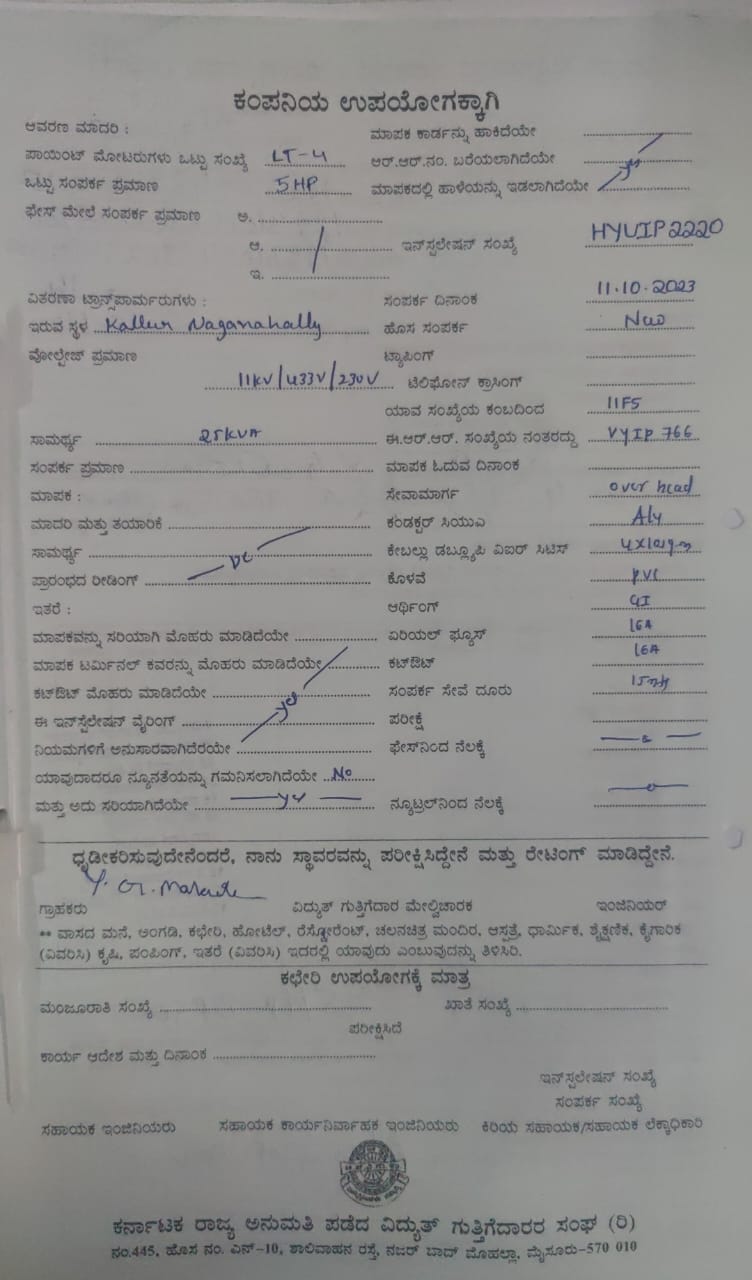 ಕಂಪನಿಯ ಉಪಯೋಗಕ್ಕಾಗಿ
ಆವರಣ ಮಾದರಿ : ಮಾಪಕ ಕಾರ್ಡನ್ನು ಹಾಕಿದೆಯೇ
ಪಾಯಿಂಟ್ ಮೋಟರುಗಳು ಒಟ್ಟು ಸಂಖ್ಯೆ LT-4 ಆರ್.ಆರ್.ನಂ. ಬರೆಯಲಾಗಿದೆಯೇ
ಒಟ್ಟು ಸಂಪರ್ಕ ಪ್ರಮಾಣ 5HP ಮಾಪಕದಲ್ಲಿ ಹಾಳೆಯನ್ನು ಇಡಲಾಗಿದೆಯೇ
ಫೇಸ್ ಮೇಲೆ ಸಂಪರ್ಕ ಪ್ರಮಾಣ ಅ.
ಆ. ಇನ್‌ಸ್ಪಲೇಷನ್ ಸಂಖ್ಯೆ HYUIP2220
ಇ.
ವಿತರಣಾ ಟ್ರಾನ್ಸ್‌ಪಾರ್ಮರುಗಳು : ಸಂಪರ್ಕ ದಿನಾಂಕ 11.10.2023
ಇರುವ ಸ್ಥಳ Kallur Naganahally ಹೊಸ ಸಂಪರ್ಕ New
ವೋಲ್ಟೇಜ್ ಪ್ರಮಾಣ ಟ್ಯಾಪಿಂಗ್
11KV/433V/230V ಟೆಲಿಫೋನ್ ಕ್ರಾಸಿಂಗ್
ಯಾವ ಸಂಖ್ಯೆಯ ಕಂಬದಿಂದ 11F5
ಸಾಮರ್ಥ್ಯ 25KVA ಈ.ಆರ್.ಆರ್. ಸಂಖ್ಯೆಯ ನಂತರದ್ದು VYIP 766
ಸಂಪರ್ಕ ಪ್ರಮಾಣ ಮಾಪಕ ಓದುವ ದಿನಾಂಕ
ಮಾಪಕ : ಸೇವಾಮಾರ್ಗ over head
ಮಾದರಿ ಮತ್ತು ತಯಾರಿಕೆ ಕಂಡಕ್ಟರ್ ಸಿಯುಎ Aly
ಸಾಮರ್ಥ್ಯ ಕೇಬಲ್ಲು ಡಬ್ಲ್ಯೂಪಿ ವಿಐರ್ ಸಿಟಿಸ್
ಪ್ರಾರಂಭದ ರೀಡಿಂಗ್ ಕೊಳವೆ PVC
ಇತರೆ : ಆರ್ಥಿಂಗ್ GI
ಮಾಪಕವನ್ನು ಸರಿಯಾಗಿ ಮೊಹರು ಮಾಡಿದೆಯೇ ಏರಿಯಲ್ ಫ್ಯೂಸ್ 16A
ಮಾಪಕ ಟರ್ಮಿನಲ್ ಕವರನ್ನು ಮೊಹರು ಮಾಡಿದೆಯೇ ಕಟ್‌ಔಟ್ 16A
ಕಟ್‌ಔಟ್ ಮೊಹರು ಮಾಡಿದೆಯೇ ಸಂಪರ್ಕ ಸೇವೆ ದೂರು
ಈ ಇನ್‌ಸ್ಟಲೇಷನ್ ವೈರಿಂಗ್ ಪರೀಕ್ಷೆ
ನಿಯಮಗಳಿಗೆ ಅನುಸಾರವಾಗಿದೆರಯೇ ಫೇಸ್‌ನಿಂದ ನೆಲಕ್ಕೆ
ಯಾವುದಾದರೂ ನ್ಯೂನತೆಯನ್ನು ಗಮನಿಸಲಾಗಿದೆಯೇ No
ಮತ್ತು ಅದು ಸರಿಯಾಗಿದೆಯೇ ನ್ಯೂಟ್ರಲ್‌ನಿಂದ ನೆಲಕ್ಕೆ
ಧೃಡೀಕರಿಸುವುದೇನೆಂದರೆ, ನಾನು ಸ್ಥಾವರವನ್ನು ಪರೀಕ್ಷಿಸಿದ್ದೇನೆ ಮತ್ತು ರೇಟಿಂಗ್ ಮಾಡಿದ್ದೇನೆ.
ಗ್ರಾಹಕರು ವಿದ್ಯುತ್ ಗುತ್ತಿಗೆದಾರ ಮೇಲ್ವಿಚಾರಕ ಇಂಜಿನಿಯರ್
** ವಾಸದ ಮನೆ, ಅಂಗಡಿ, ಕಛೇರಿ, ಹೋಟೆಲ್, ರೆಸ್ಟೋರೆಂಟ್, ಚಲನಚಿತ್ರ ಮಂದಿರ, ಆಸ್ಪತ್ರೆ, ಧಾರ್ಮಿಕ, ಶೈಕ್ಷಣಿಕ, ಕೈಗಾರಿಕ
(ವಿವರಿಸಿ) ಕೃಷಿ, ಪಂಪಿಂಗ್, ಇತರೆ (ವಿವರಿಸಿ) ಇದರಲ್ಲಿ ಯಾವುದು ಎಂಬುವುದನ್ನು ತಿಳಿಸಿರಿ.
ಕಛೇರಿ ಉಪಯೋಗಕ್ಕೆ ಮಾತ್ರ
ಮಂಜೂರಾತಿ ಸಂಖ್ಯೆ ಖಾತೆ ಸಂಖ್ಯೆ
ಪರೀಕ್ಷಿಸಿದೆ
ಕಾರ್ಯ ಆದೇಶ ಮತ್ತು ದಿನಾಂಕ
ಇನ್‌ಸ್ಪಲೇಷನ್ ಸಂಖ್ಯೆ
ಸಂಪರ್ಕ ಸಂಖ್ಯೆ
ಸಹಾಯಕ ಇಂಜಿನಿಯರು ಸಹಾಯಕ ಕಾರ್ಯನಿರ್ವಾಹಕ ಇಂಜಿನಿಯರು ಕಿರಿಯ ಸಹಾಯಕ/ಸಹಾಯಕ ಲೆಕ್ಕಾಧಿಕಾರಿ
ಕರ್ನಾಟಕ ರಾಜ್ಯ ಅನುಮತಿ ಪಡೆದ ವಿದ್ಯುತ್ ಗುತ್ತಿಗೆದಾರರ ಸಂಘ (ರಿ)
ನಂ.445, ಹೊಸ ನಂ. ಎನ್-10, ಶಾಲಿವಾಹನ ರಸ್ತೆ, ನಜರ್ ಬಾದ್ ಮೊಹಲ್ಲಾ, ಮೈಸೂರು-570 010